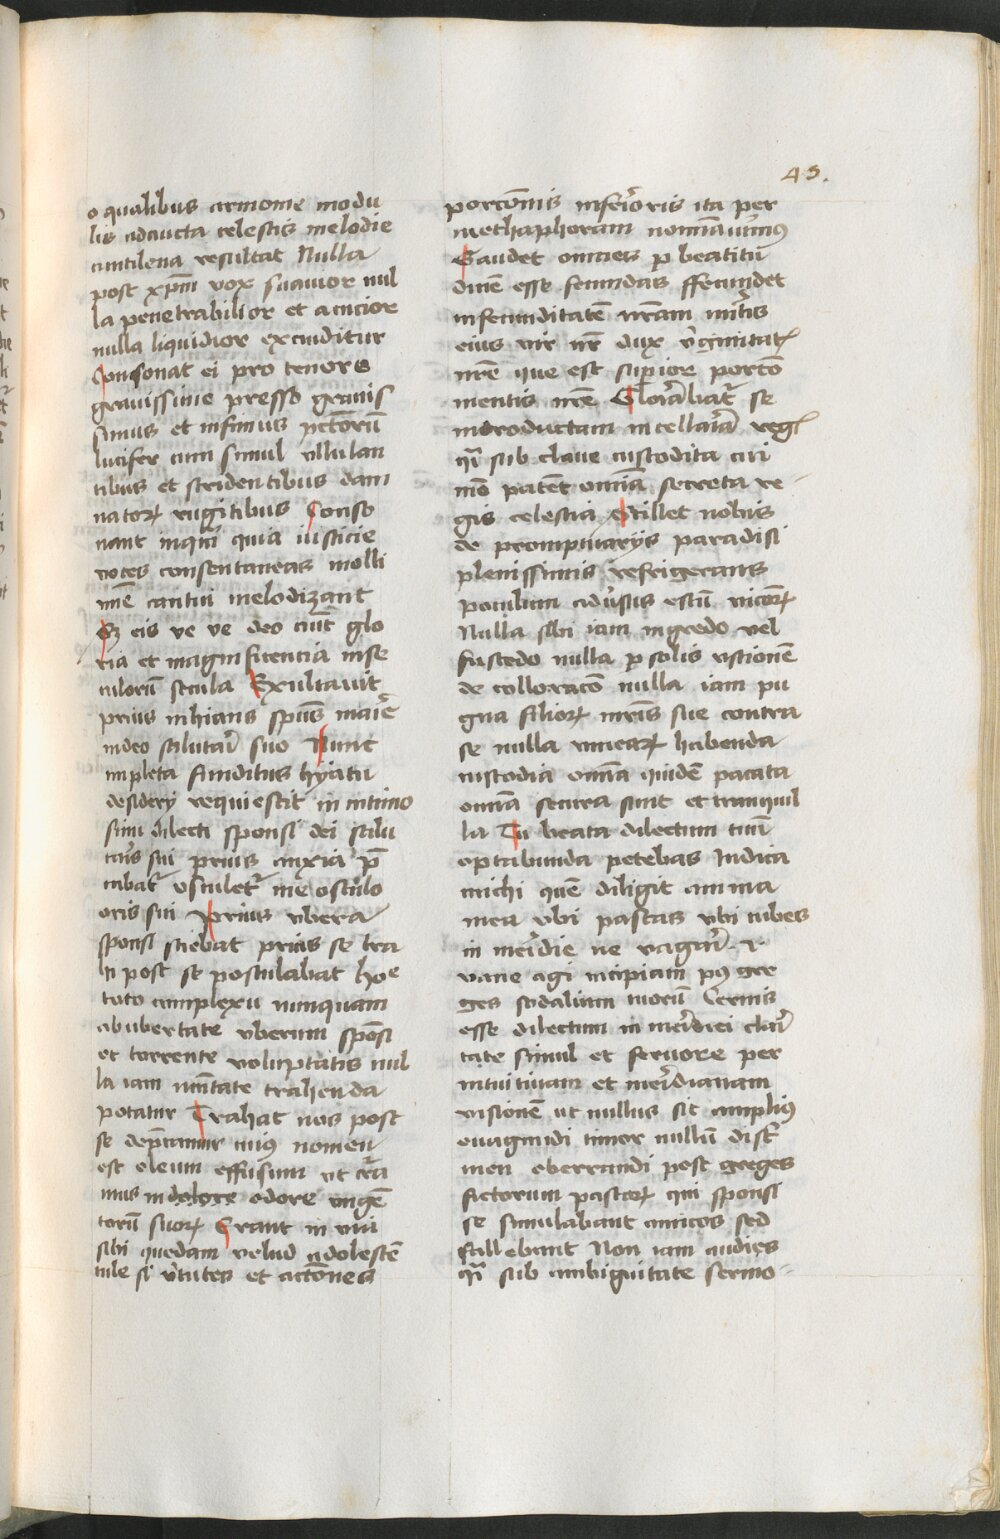 43.
o qualibus armonie modu
lis adaucta celestis melodie
cantilena resultat Nulla
post xpm̄ vox suavior nul
la penetrabilior et acucior
nulla liquidior exauditur
Consonat ei pro tenore
gravissime presso gravis
simus et infimus pctorū
lucifer cum simul ullulan
tibus et stridentibus dam
natoꝝ rugitibus Conso
nant inquā quia iusticie
voces consentaneas molli
me cantui melodizant
Sꝫ eis ve ve deo aut glo
ria et magnificencia in se
culorū secula Exultavit
prius inhians spūs marie
in deo salutari suo Nunc
impleta funditus hyatu
desiderij requiescit in intimo
sinu dilecti sponsi dei salu
taris sui prius anxia p̄
cabat᷑ osculet᷑ me osculo
oris sui Prius ubera
sponsi sciebat prius se tra
hi post se postulabat hoc
toto complexu nunquam
ab ubertate uberum sponsi
et torrente voluptatis nul
la iam trahenda
potatur Trahat nos post
se dep̄camur cuiꝰ nomen
est oleum effusum ut cura
mus in dolore odore ungē
torū suoꝝ Erant in via
sibi quedam velud adolescē
tule si v̄tutes et actiones
porcōnis inferioris ita per
methaphoram nominavimꝰ
Gaudet omnes p beatitu
dinē esse fecundas ffecundet
infecunditatē nr̄am mitis
eius vir nr̄ dux v̄ginitatꝭ
nr̄e que est superiore porcō
mentis nr̄e Gloriabat᷑ se
introductam in cellaria regꝭ
q̄i sub clave custodita cui
mō patent omnia secreta re-
gis celestia Stillet nobis
de promptuarijs paradisi
plenissimis refrigerans
poculum adustis estu viceꝝ
Nulla sibi iam nigredo vel
fuscedo nulla p solis ustionē
decolloracō nulla iam pu
gna filioꝝ mr̄is sue contra
se nulla vineaꝝ habenda
custodia omnia quidē pacata
omnia secura sunt et tranquil
la Tu beata dilectum tuū
optabunda petebas Indica
michi quē diligit anima
mea ubi pascas ubi cubes
in meridie ne vagari. ⁊
vane agi incipiam pꝰ gre
ges sodalium tuorū Cernis
esse dilectum in meridiei clari
tate simul et fervore per
intuitivam et meridianam
visionē ut nullus sit ampliꝰ
evagandi timor nullū discri
men oberrandi post greges
fictorum pastoꝝ qui sponsi
se simulabant amicos sed
fallebant Non iam audies
q̄i sub ambiguitate sermo-